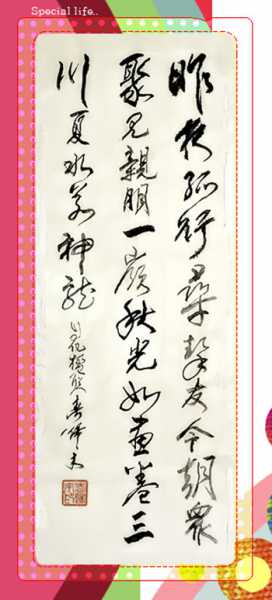 Special life..
昨夜孤行尋摯友今朝眾
聚見親朋一嶺秋光如畫卷三
川夏水若神龍